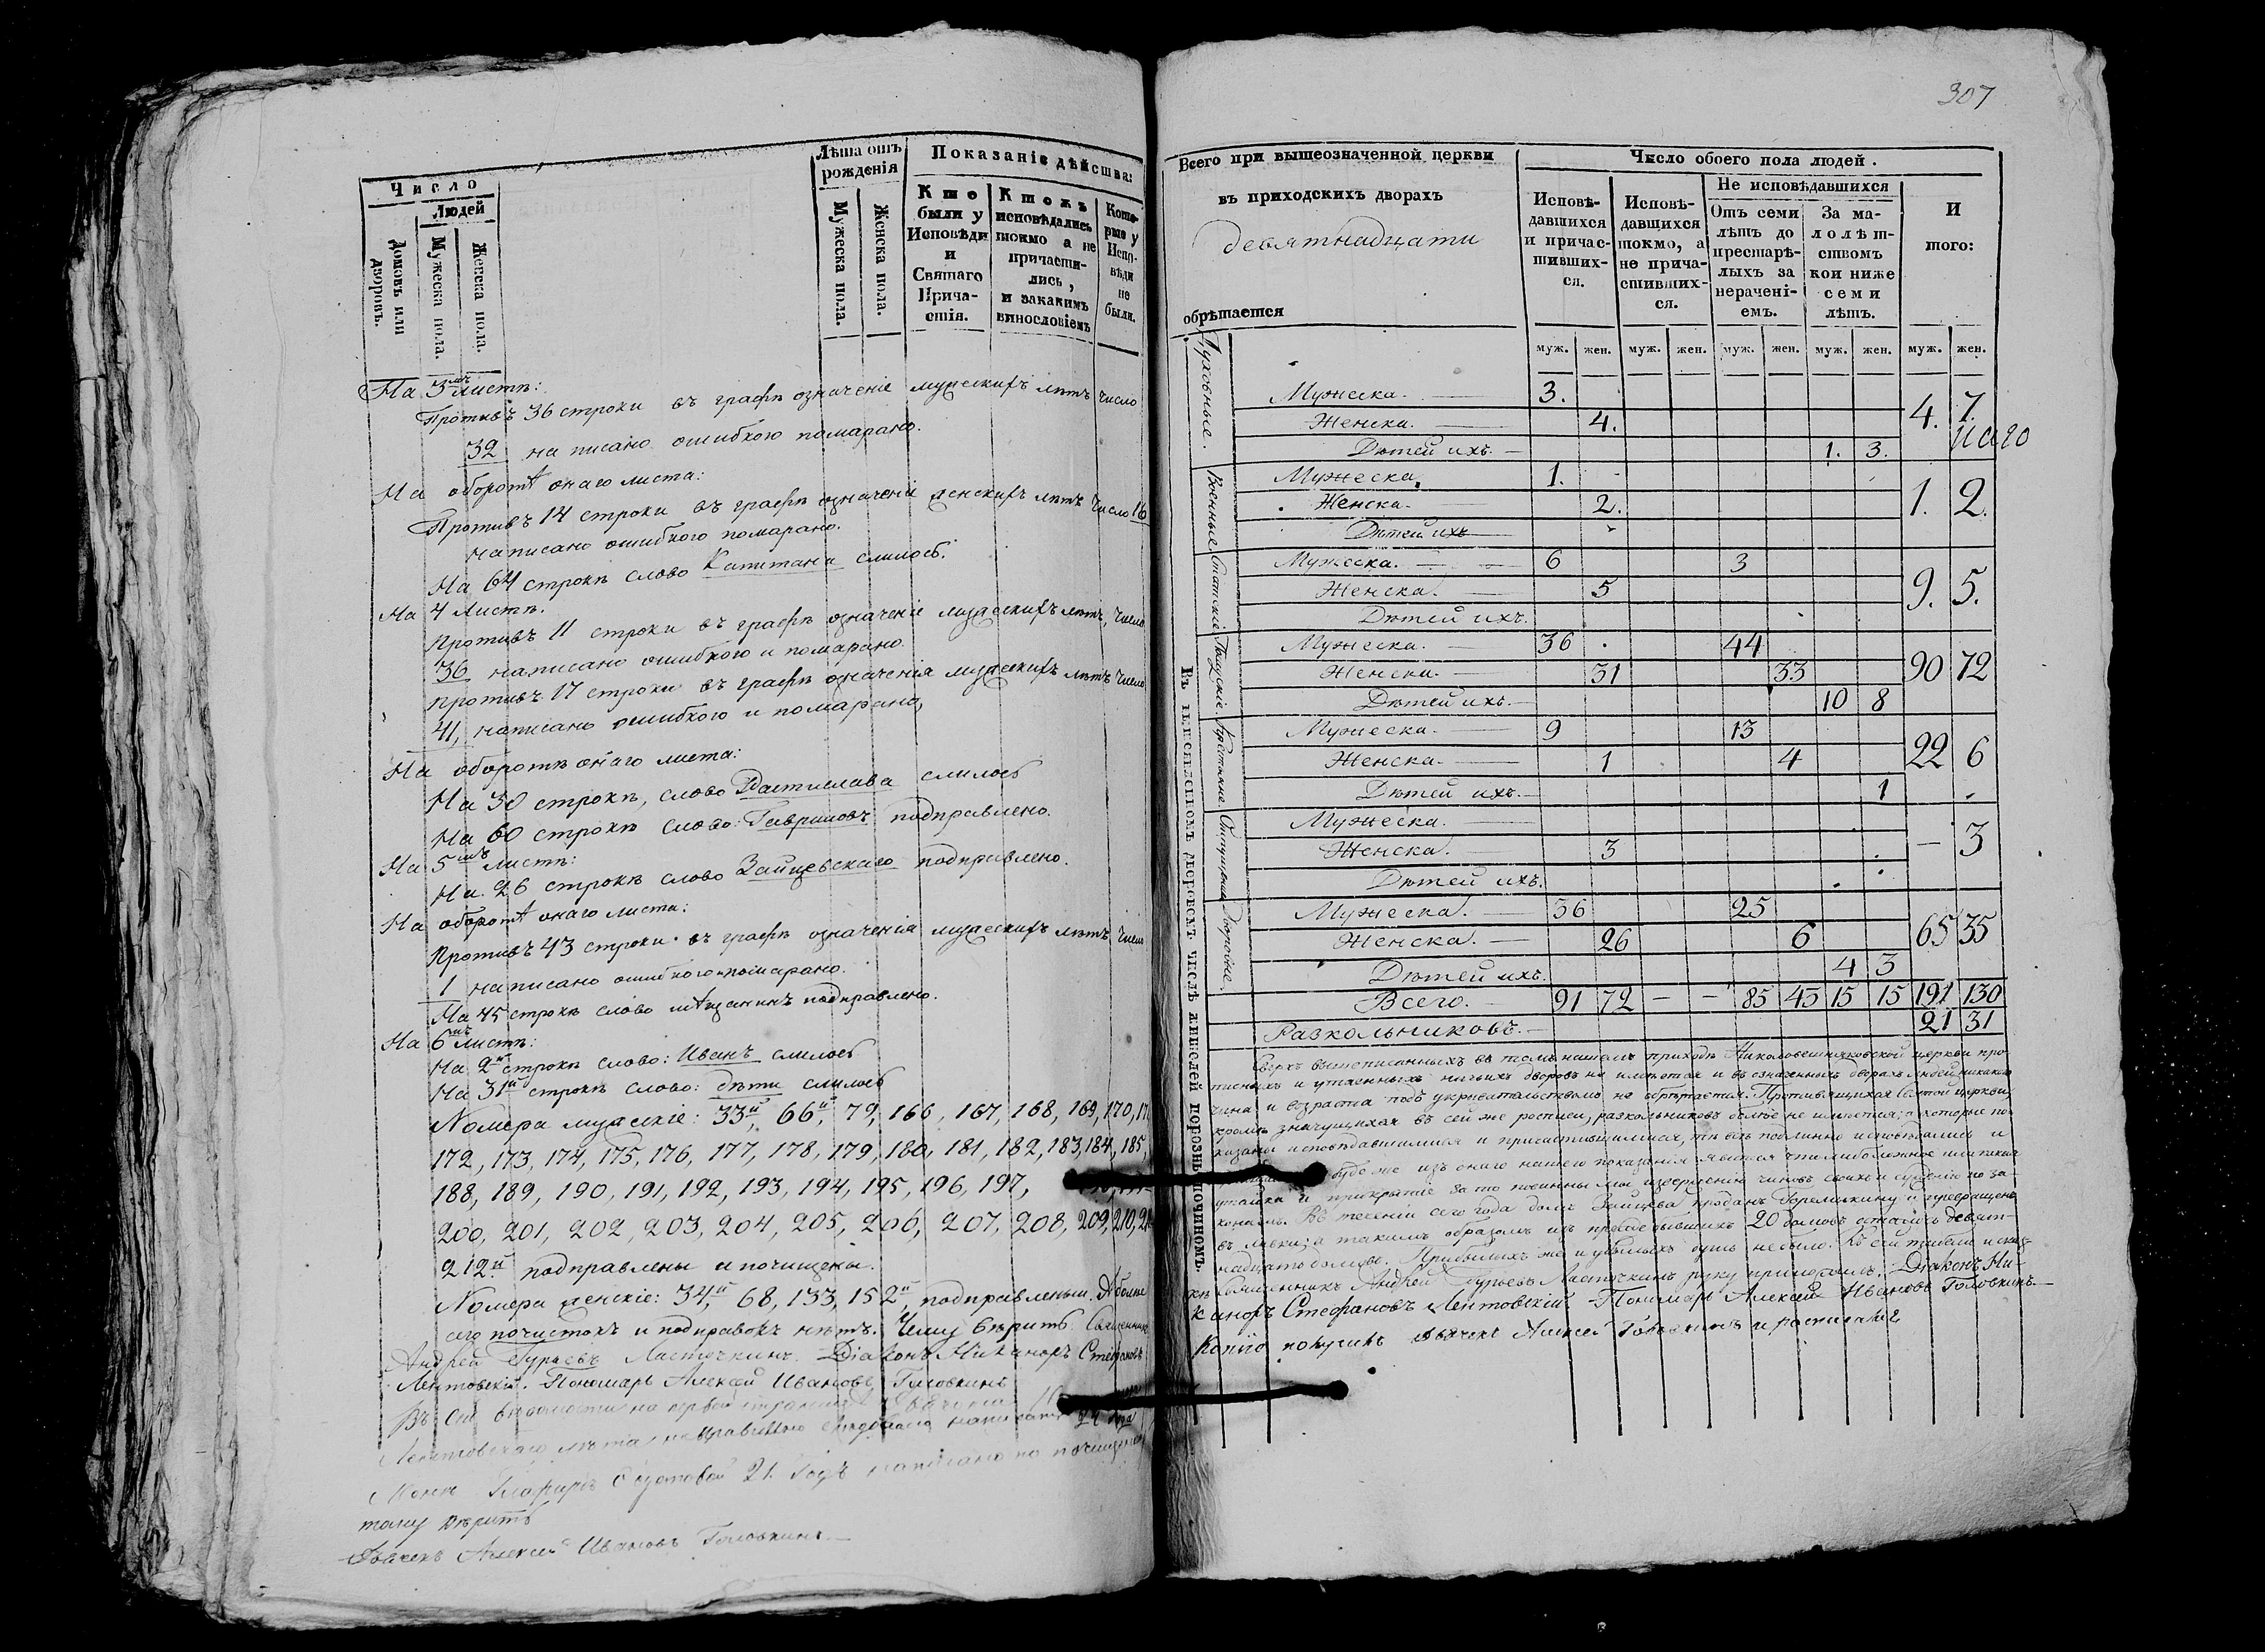 Число
Людей
Домовъ или дворовъ.
Мужеска пола.
Женска пола.
Лѣта отъ рожденія
Мужеска пола.
Женска пола.
Показаніе дѣйства:
Кто были у Исповѣди и Святаго Причастія.
Ктожъ исповѣдались токмо а не причастились, и закакимъ винословіемъ
Которые у Исповѣди не были.
На 3мъ листѣ:
Противъ 36 строки въ графѣ означеніе мужескихъ лѣтъ число
32 написано ошибкою помарано.
На оборотѣ онаго листа:
Противъ 14 строки въ графѣ означеніи женскихъ лѣтъ число 16
написано ошибкою помарано.
На 64 строкѣ слово Капитана слилось.
На 4 листѣ.
Противъ 11 строки въ графѣ означеніе мужескихъ лѣтъ, число
36 написано ошибкою и помарано.
противъ 17 строки въ графѣ означенія мужескихъ лѣтъ число
41, написано ошибкою и помарано,
На оборотѣ онаго листа:
На 30 строкѣ, слово Растислава слилось
На 60 строкѣ слово: Гавриловъ подправлено.
На 5мъ листѣ:
На 26 строкѣ слово Зайцевскаго подправлено.
На оборотѣ онаго листа:
Противъ 43 строки въ графѣ означенія мужескихъ лѣтъ, число
1 написано ошибкою помарано.
На 45 строкѣ слово мѣщанинъ подправлено.
На 6мъ листѣ:
На 2й строкѣ слово: Иванъ слилось
На 31й строкѣ слово: дѣти слилось
Номера мужескіе: 33й, 66й, 79, 166, 167, 168, 169, 170,
172, 173, 174, 175, 176, 177, 178, 179, 180, 181, 182, 183, 184, 185,
188, 189, 190, 191, 192, 193, 194, 195, 196, 197,
200, 201, 202, 203, 204, 205, 206, 207, 208, 209, 210,
212й подправлены и почищены.
Номера женскіе: 34й, 68, 133, 152й, подправлены. А болѣе
сего почистокъ и подправокъ нѣтъ. Чему вѣритъ Священникъ
Андрей Гурьевъ Ласточкинъ. Діаконъ Никаноръ Стефановъ
Лентовскій. Пономарь Алексѣй Ивановъ Головкинъ
Въ сей вѣдомости на первой страницѣ
Лентовскаго лѣта неправильно написано
21. годъ написано по почищенному
тому вѣритъ
Дьячекъ Алексѣй Ивановъ Головкинъ
307
Всего при вышеозначенной церкви
въ приходскихъ дворахъ
девятнадцати
обрѣтается
Число обоего пола людей.
Исповѣдавшихся и причастившихся.
Исповѣдавшихся токмо, а не причастившихся.
Не исповѣдавшихся
Отъ семи лѣтъ до престарѣлыхъ за нераченіемъ.
За малолѣтствомъ кои ниже семи лѣтъ.
И того:
муж. жен. муж. жен. муж. жен. муж. жен. муж. жен.
Въ вышеписанномъ дворовъ числѣ жителей порознь по чиномъ.
Духовные.
Мужеска. 3.
Женска. 4. 4. 7.
Дѣтей ихъ. 1. 3.
Военные.
Мужеска. 1.
Женска. 2. 1. 2.
Дѣтей ихъ
Статскіе
Мужеска. 6 3
Женска. 5 9. 5.
Дѣтей ихъ.
Мужеска. 36 44
Женска. 31 33 90 72
Дѣтей ихъ. 10 8
Крестьяне.
Мужеска. 9 13
Женска. 1 4 22 6
Дѣтей ихъ. 1
Мужеска.
Женска. 3 — 3
Дѣтей ихъ.
Дворовые.
Мужеска. 36 25
Женска. 26 6 65 35
Дѣтей ихъ. 4 3
Всего. 91 72 — — 85 43 15 15 191 130
Разкольниковъ. 21 31
Сверхъ вышеписанныхъ въ томъ нашемъ приходѣ церкви про-
писныхъ и утаенныхъ ничьихъ дворовъ не имѣется и въ означенныхъ дворахъ людей никакого
чина и возраста подъ укрывательствомъ не обрѣтается. Противящихся Святой церкви,
кромѣ значущихся въ сей же росписи, разкольниковъ болѣе не имѣется; а которые по-
казаны исповѣдавшимися и причастившимися, тѣ всѣ подлинно исповѣдались и
буде же изъ онаго нашего показанія явится что либо ложное или какая
утайка и прикрытіе за то повинны мы изверженію чиновъ своихъ и сужденію по за-
конамъ. Въ теченіи сего года домъ Зайцева проданъ и превращенъ
въ лавки; а такимъ образомъ изъ прежде бывшихъ 20 домовъ осталось девят-
надцать домовъ. Прибылыхъ же и убылыхъ душъ не было. Къ сей
Священникъ Андрей Гурьевъ Ласточкинъ руку приложилъ. Діаконъ Ни-
каноръ Стефановъ Лентовскій Пономарь Алексѣй Ивановъ Головкинъ
Копію получилъ дьячекъ Алексѣй Головкинъ и росписался